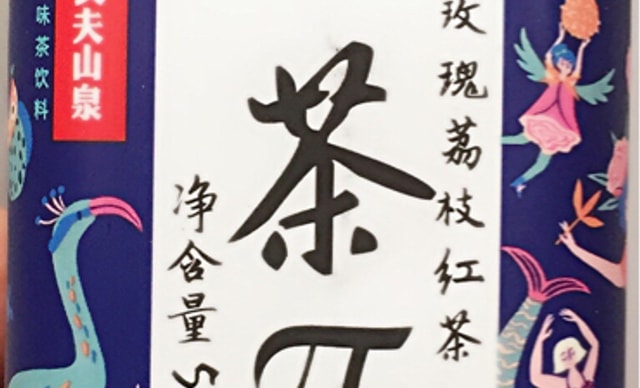 味茶饮料
夫山泉
茶π
净含量5
玫瑰荔枝红茶